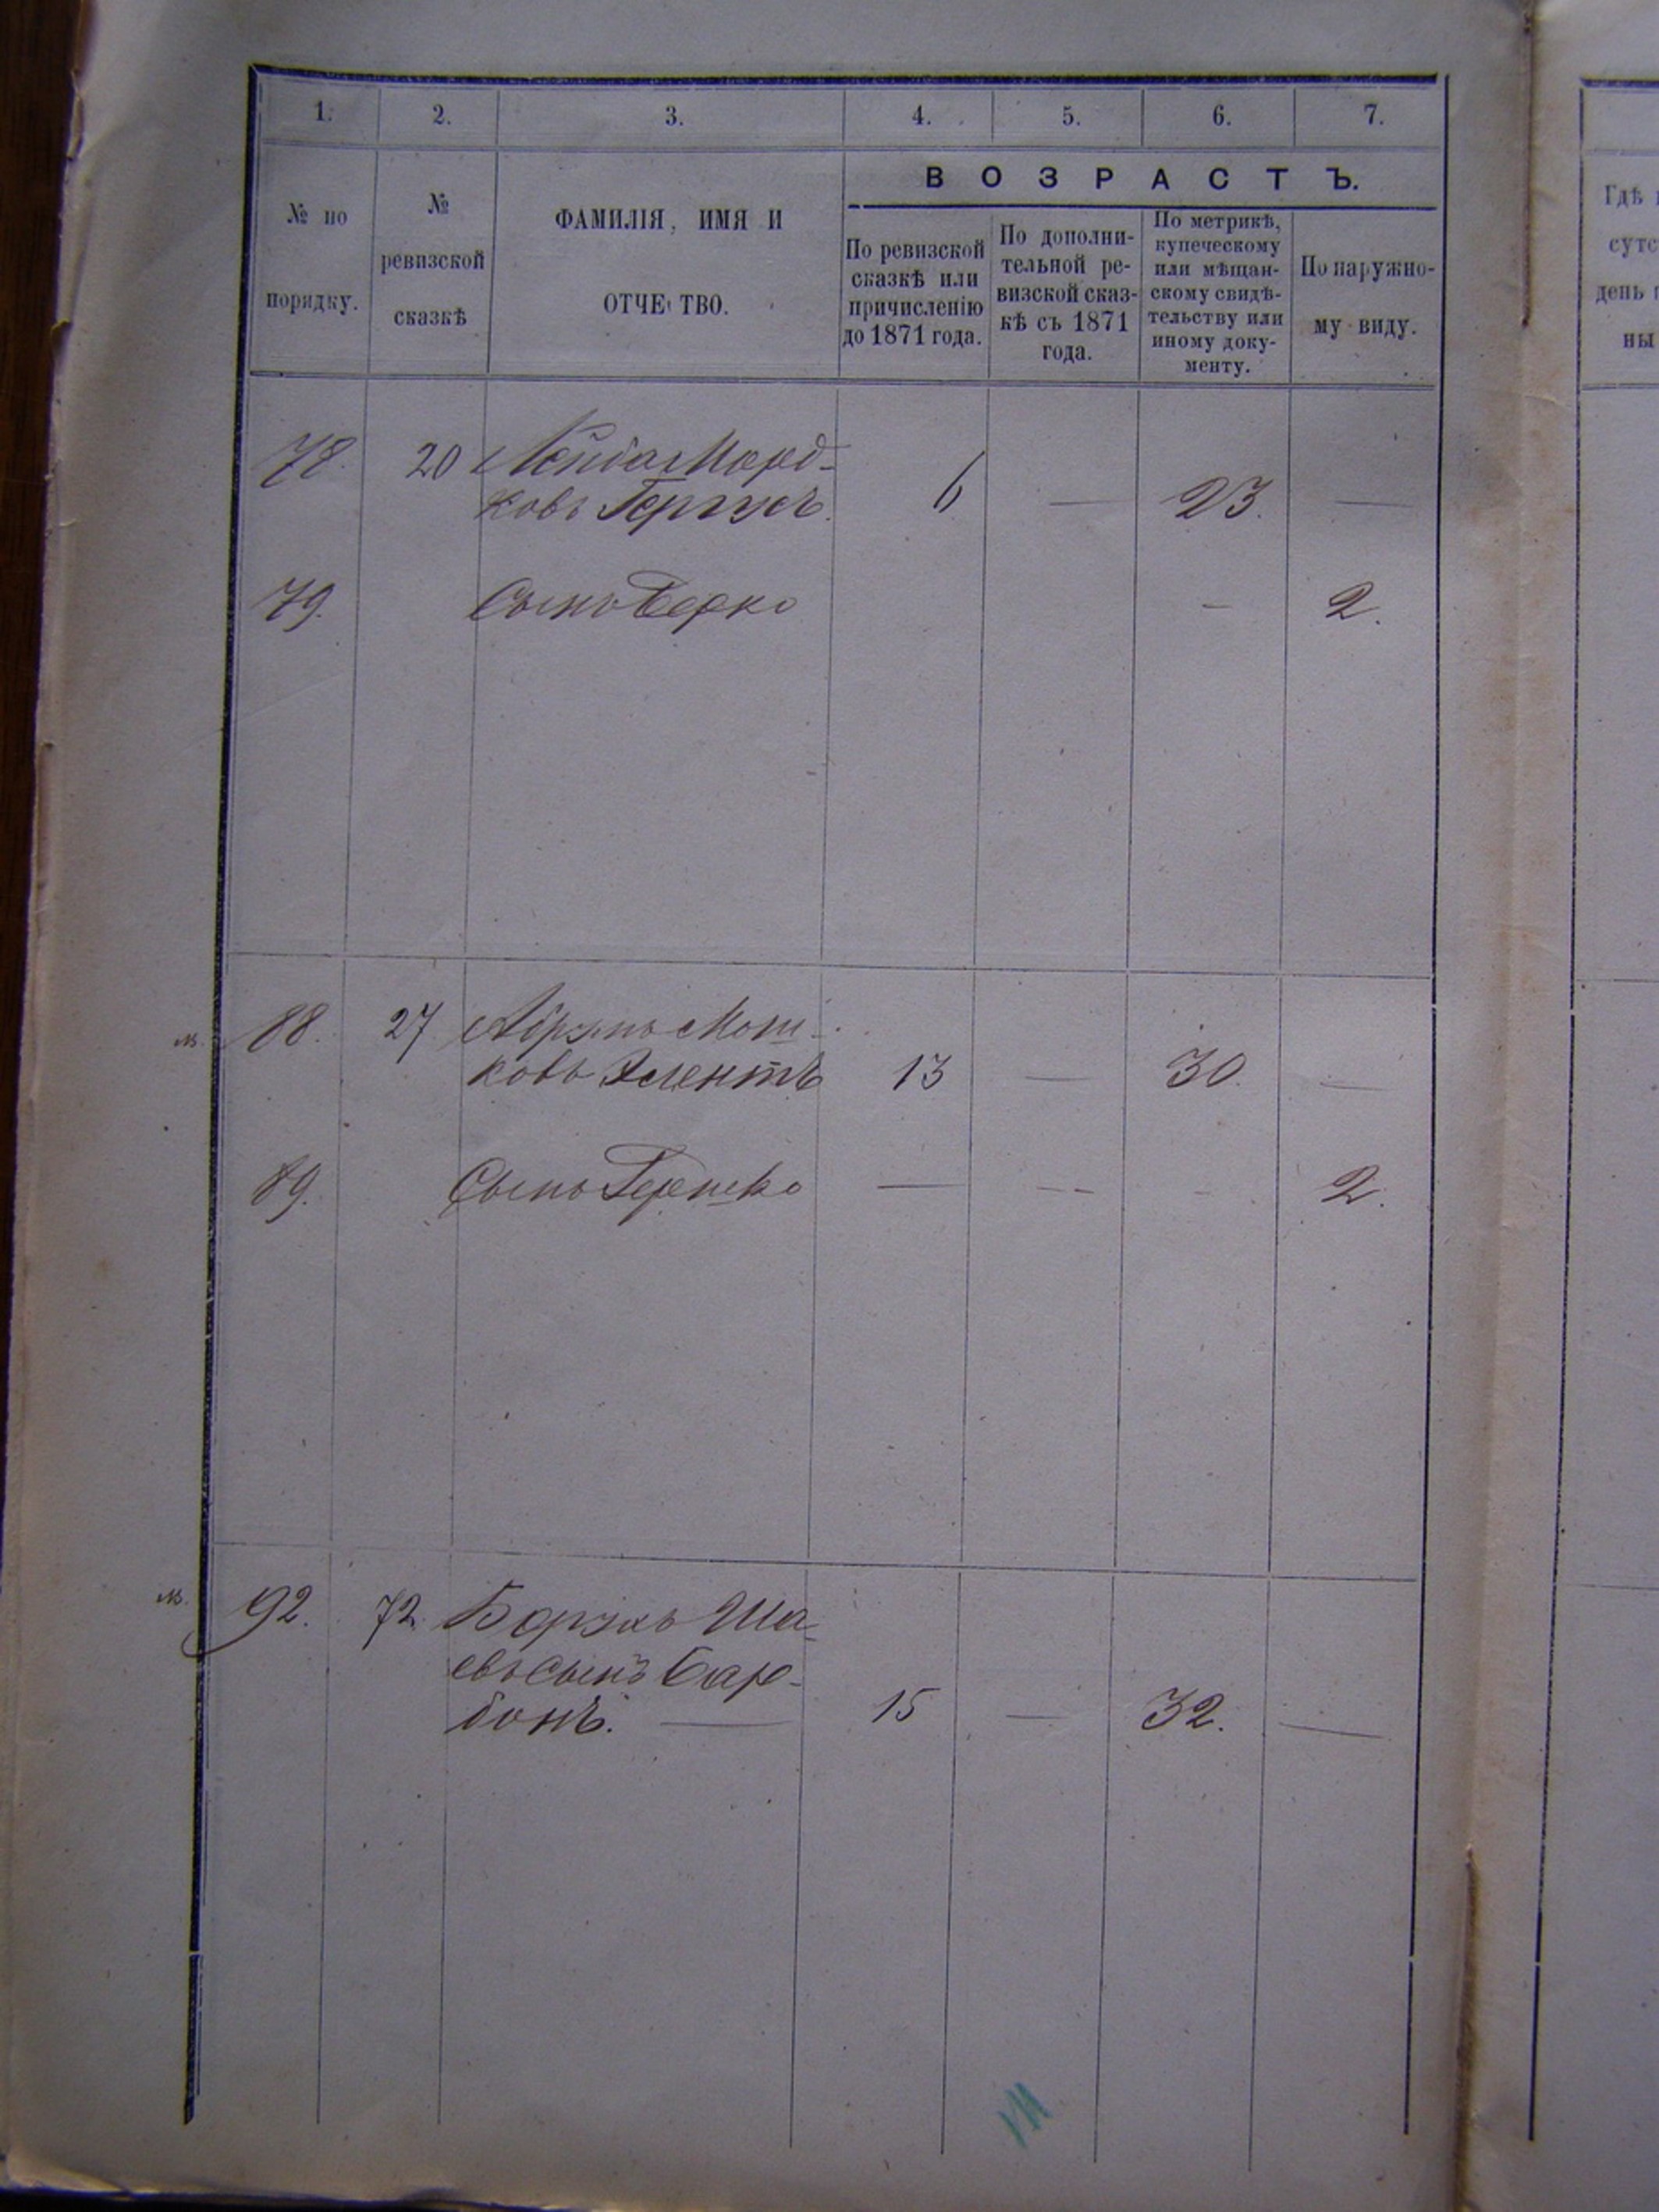 1. 2. 3. 4. 5. 6. 7.
ВОЗРАСТЪ.
№ по
порядку.
№
ревизской
сказкѣ
ФАМИЛІЯ, ИМЯ И
ОТЧЕСТВО.
По ревизской
сказкѣ или
причисленію
до 1871 года.
По дополни-
тельной ре-
визской сказ-
кѣ съ 1871
года.
По метрикѣ,
купеческому
или мѣщан-
скому свидѣ-
тельству или
иному доку-
менту.
По наружно-
му виду.
78. 20 Лейба Морд-
ковъ 6 — 23. —
79. Сынъ Берко — 2.
88. 27 Абрамъ Мош-
ковъ Элентъ 13 — 30. —
89. Сынъ Гершко — — - 2.
92. 72. Борухъ Ша-
евъ сынъ Бар-
бонъ. — 15 — 32. —
Гдѣ
сутс
день
ны